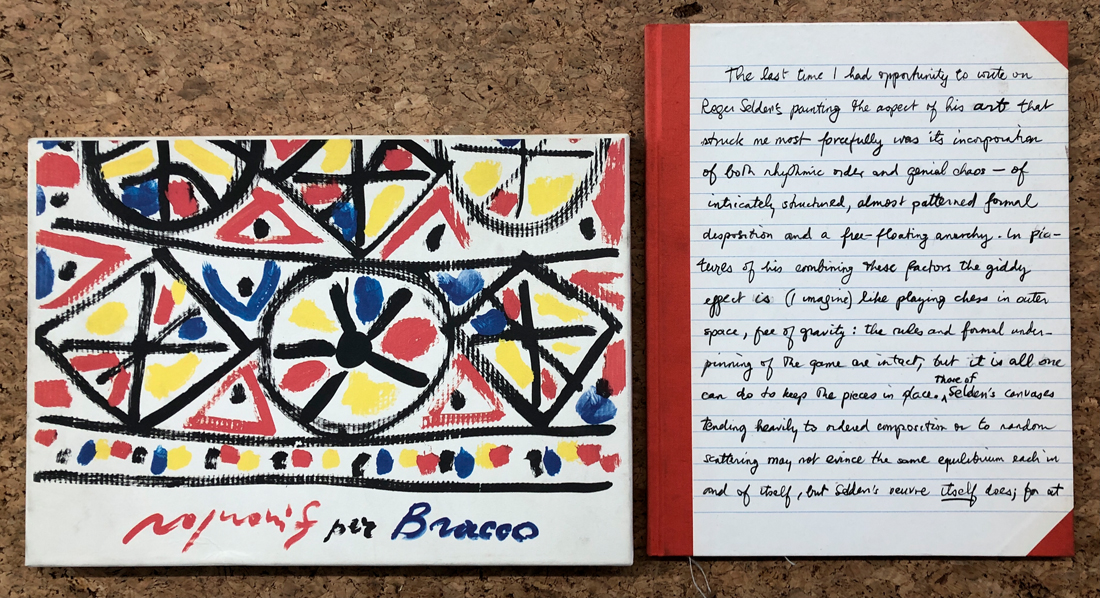 per Bracco
The last time I had opportunity to write on
Roger Selden's painting the aspect of his art that
struck me most forcefully was its incorporation
of both rhythmic order and genial chaos — of
intricately structured, almost patterned formal
disposition and a free-floating anarchy. In pic-
tures of his combining these factors the giddy
effect is (I imagine) like playing chess in outer
space, free of gravity: the rules and formal under-
pinning of the game are intact, but it is all one
can do to keep the pieces in place. Those of Selden's canvases
tending heavily to ordered composition or to random
scattering may not evince the same equilibrium each in
and of itself, but Selden's oeuvre itself does; for at